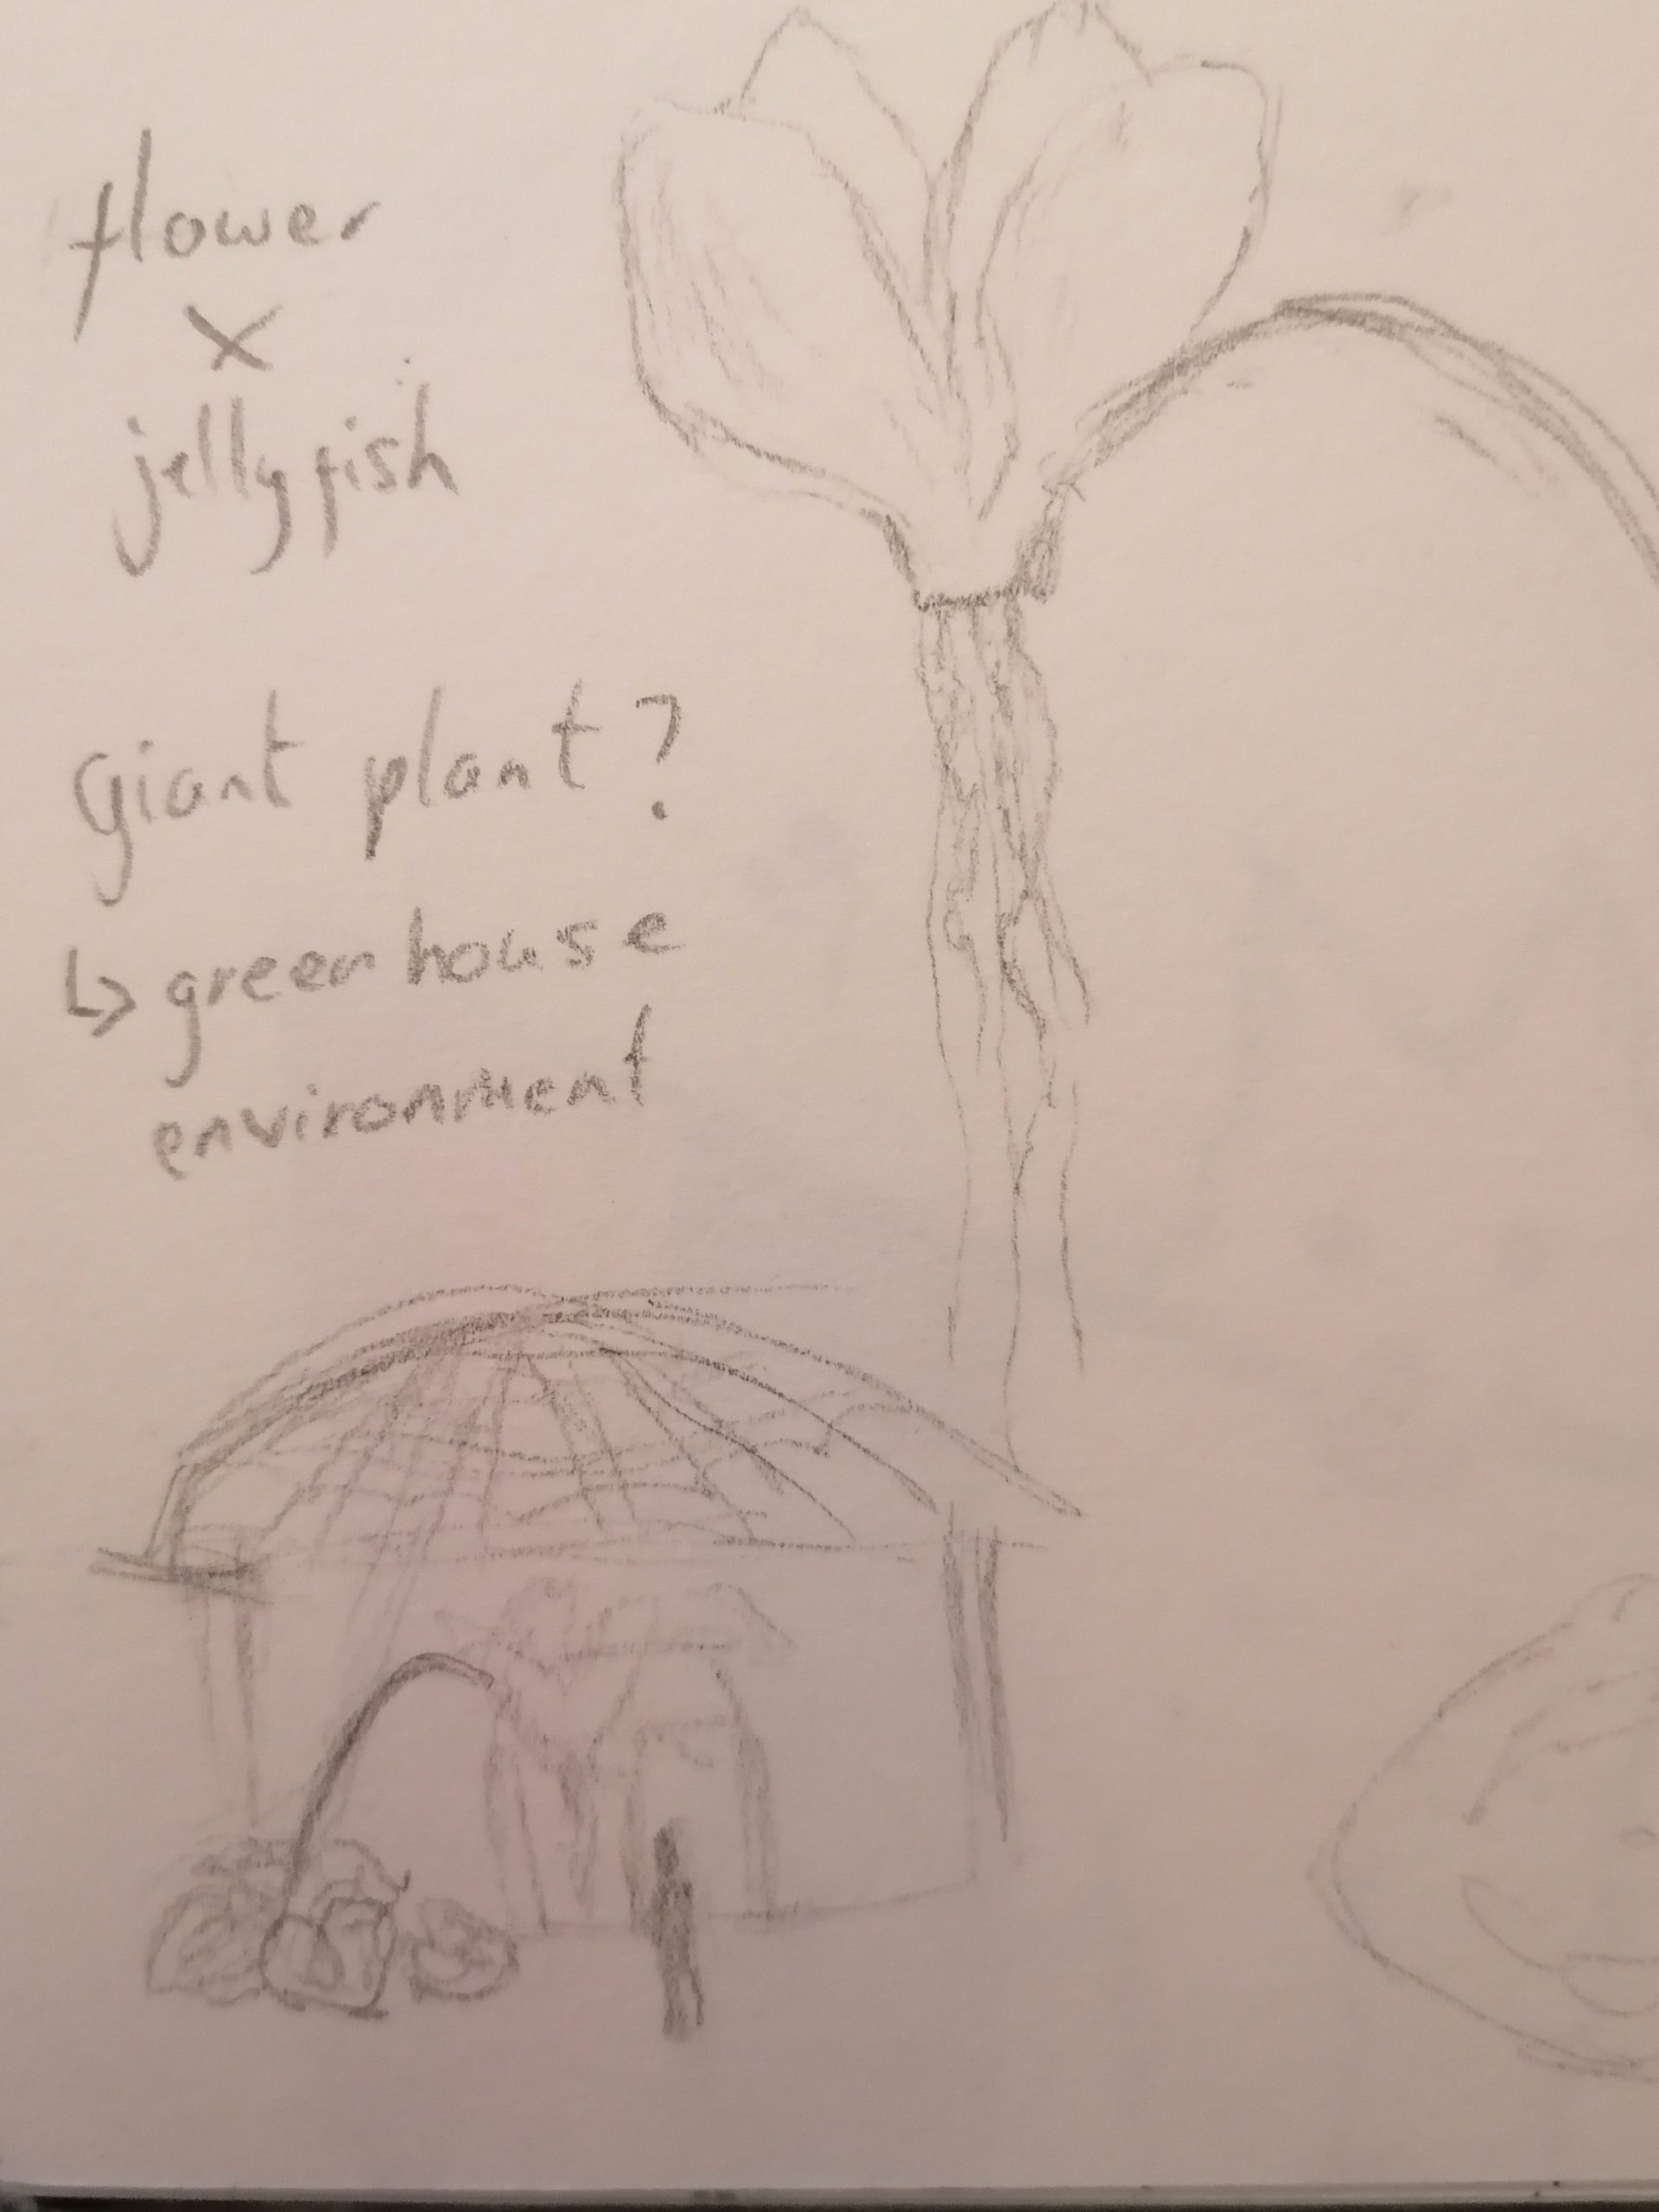 flower
x
jellyfish
giant plant?
↳ greenhouse
environment